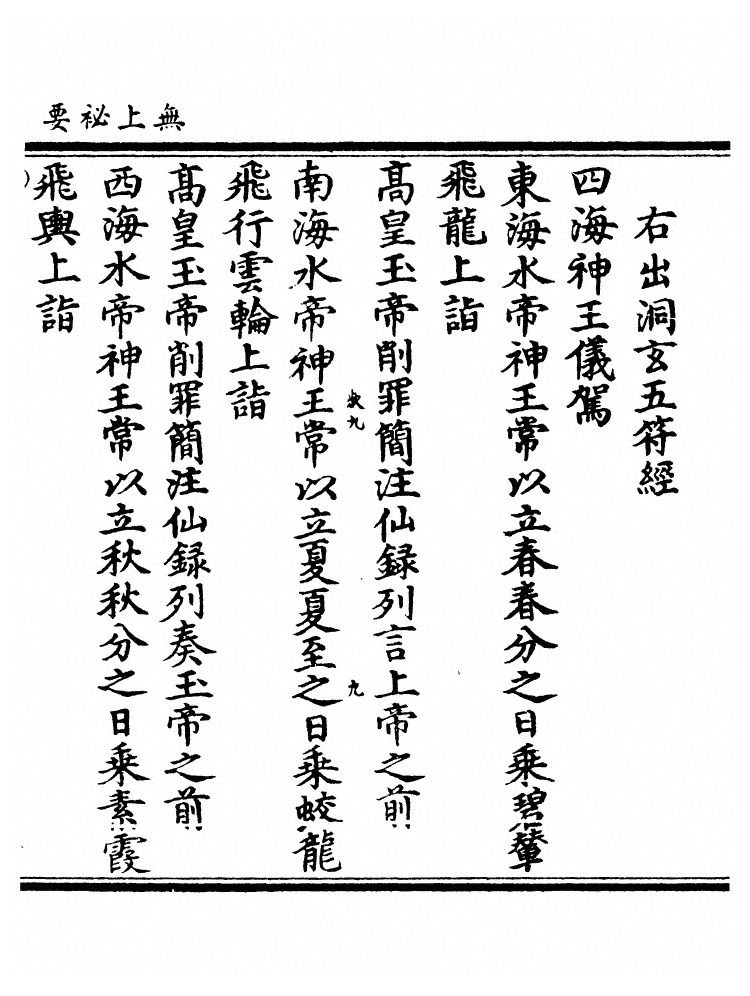 無上祕要
右出洞玄五符經
四海神王儀駕
東海水帝神王常以立春春分之日乘碧輦
飛龍上詣
高皇玉帝削罪簡注仙録列言上帝之前
南海水帝神王常以立夏夏至之日乘蛟龍
飛行雲輪上詣
高皇玉帝削罪簡注仙録列奏玉帝之前
西海水帝神王常以立秋秋分之日乘素霞
飛輿上詣